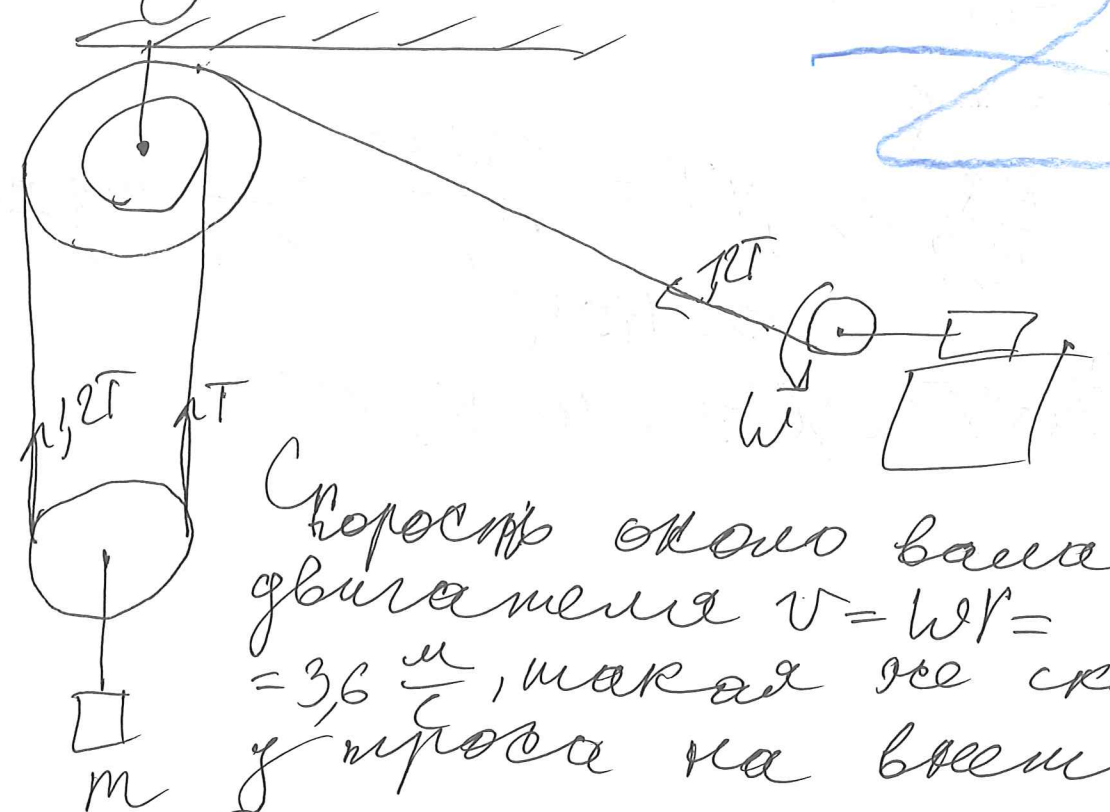 1,2T
1,2T
T
W
Скорость около вала
двигателя v = Wr =
= 3,6 м/с, такая же ск
у троса на внеш
m